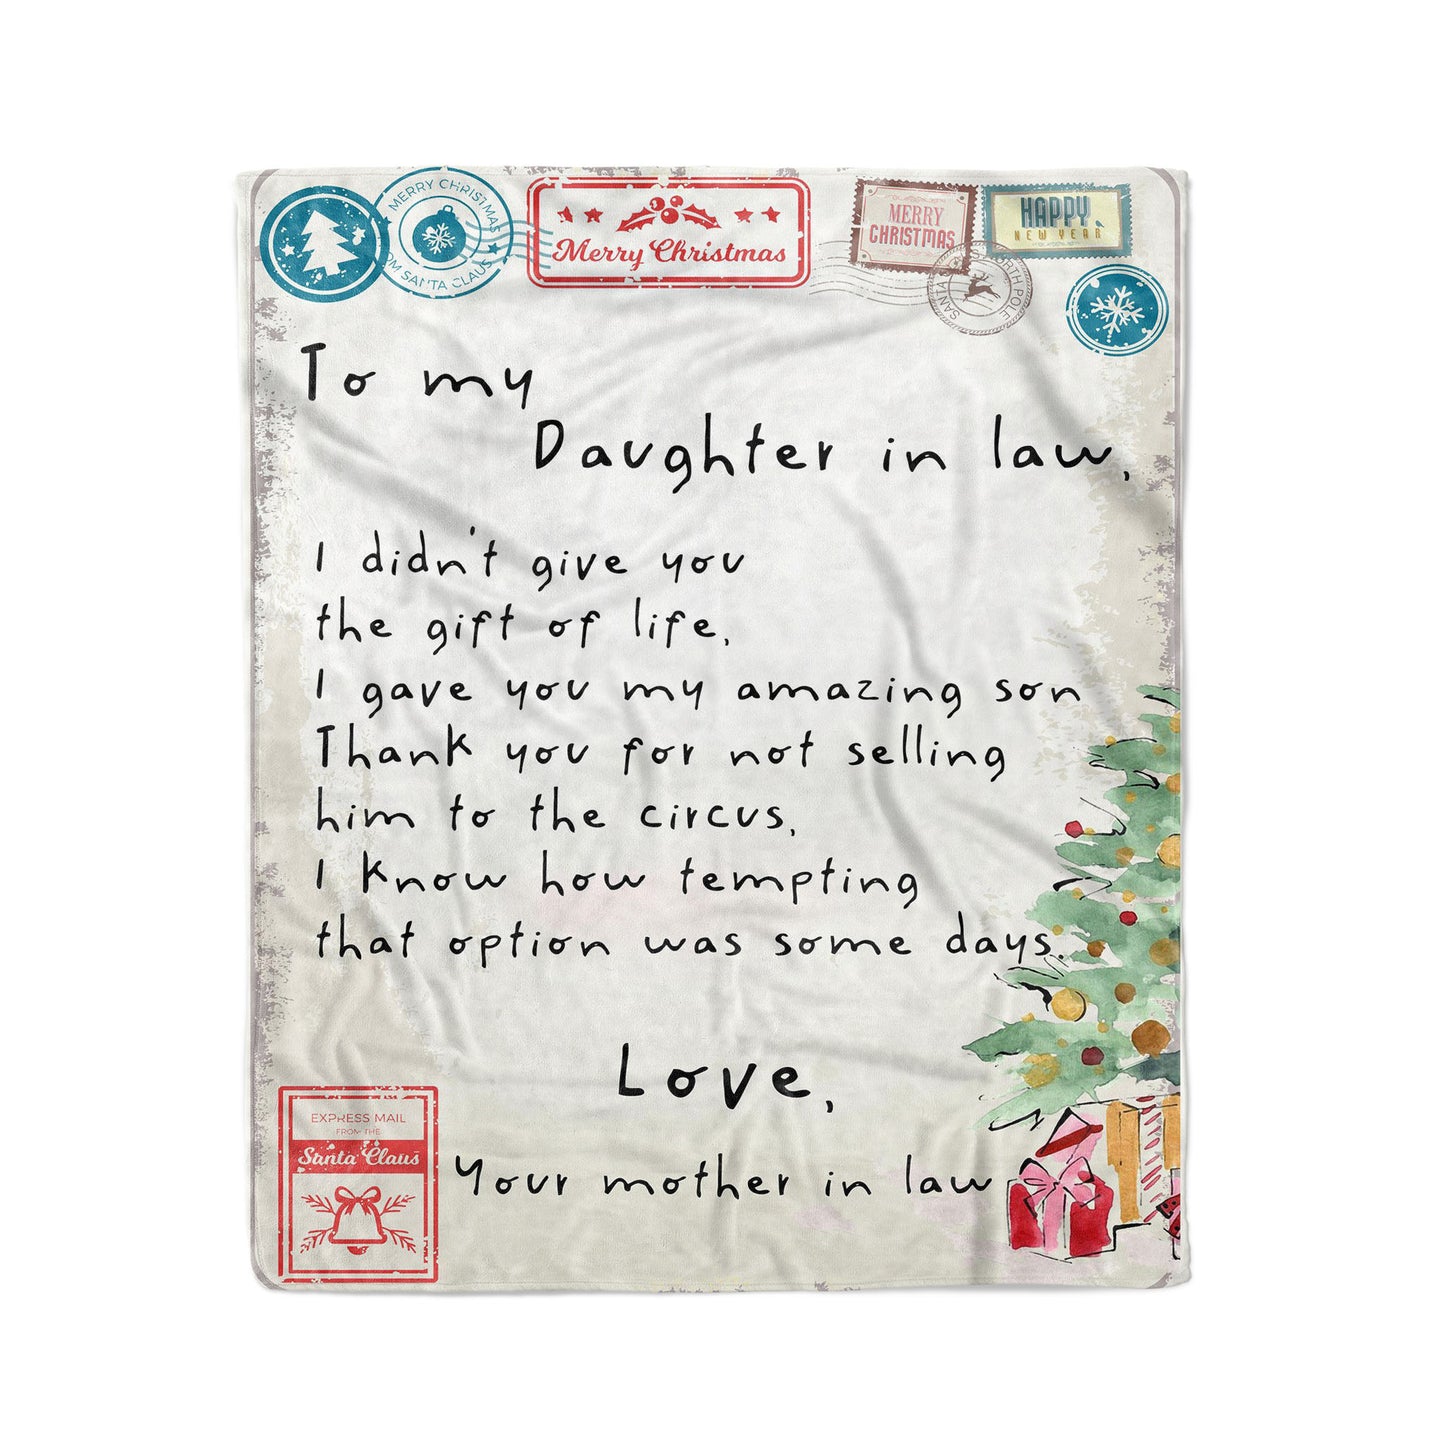 MERRY CHRISTMAS
OM SANTA CLAUS
Merry Christmas
MERRY
CHRISTMAS
HAPPY
NEW YEAR
SANTA
NORTH POLE
To my
Daughter in law,
I didn't give you
the gift of life,
I gave you my amazing son
Thank you for not selling
him to the circus,
I know how tempting
that option was some days.
Love,
Your mother in law
EXPRESS MAIL
FROM THE
Santa Claus